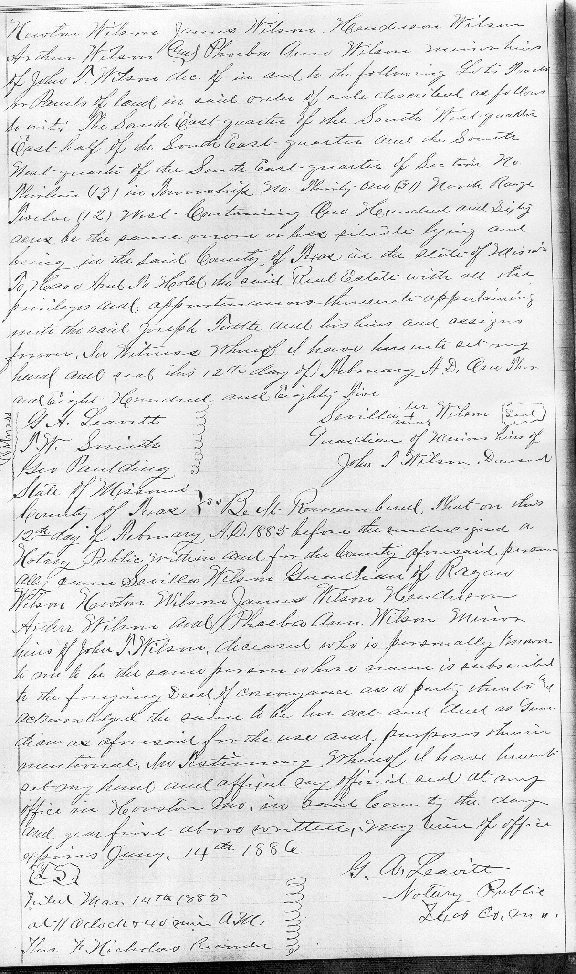 Houston Wilson James Wilson Henderson Wilson
Arthur Wilson (and) Phoeba Ann Wilson minor hiers
of John T. Wilson dec. of in and to the following Lots Tracts
or Parcels of land in said order of sale described as follows
to wit: The South East quarter of the South West quarter
East half of the South East quarter and the South
West quarter of the South East quarter of Section No
Thirteen (13) in Township No Thirty One (31) North Range
Twelve (12) West Containing One Hundred and Sixty
acres be the same more or less situate lying and
being in the said County of Texas in the state of Missouri
To Have And To Hold the said Real Estate with all the
privileges and appurtenances thereunto appertaining
unto the said Joseph Tuttle and his hiers and assigns
forever. In Witness Whereof I have hereunto set my
hand and seal this 12th day of February A.D. One Thou
and Eight Hundred and Eighty Five
Witness
G. A. Leavitt
T. W. Smith
Geo Paulding
Sevilla her Wilson (Seal)
mark
Guardian of Minor hiers of
John T Wilson Deceased
State of Missouri
County of Texas } ss Be It Remembered, That on this
12th day of February A.D. 1885 before the undersigned a
Notary Public within and for the County aforesaid person
ally came Sevilla Wilson Guardian of Ragan
Wilson Houston Wilson James Wilson Henderson
Arthur Wilson and Phoeba Ann Wilson Minor
hiers of John T. Wilson, deceased who is personally known
to me to be the same person whose name is subscribed
to the foregoing Deed of conveyance as a party thereto &
acknowledged the same to be her act and deed as Guar
dian as aforesaid for the use and purposes therein
mentioned. In Testimony Whereof I have hereunto
set my hand and affixed my official seal at my
office in Houston Mo. in said County the day
and year first above written, My term of office
expires Jany. 14th 1886
G. A. Leavitt
Notary Public
Texas Co, Mo.
Filed Mar 14th 1885
at 11 Oclock & 40 min A.M.
Thos. N. Nicholas Recorder